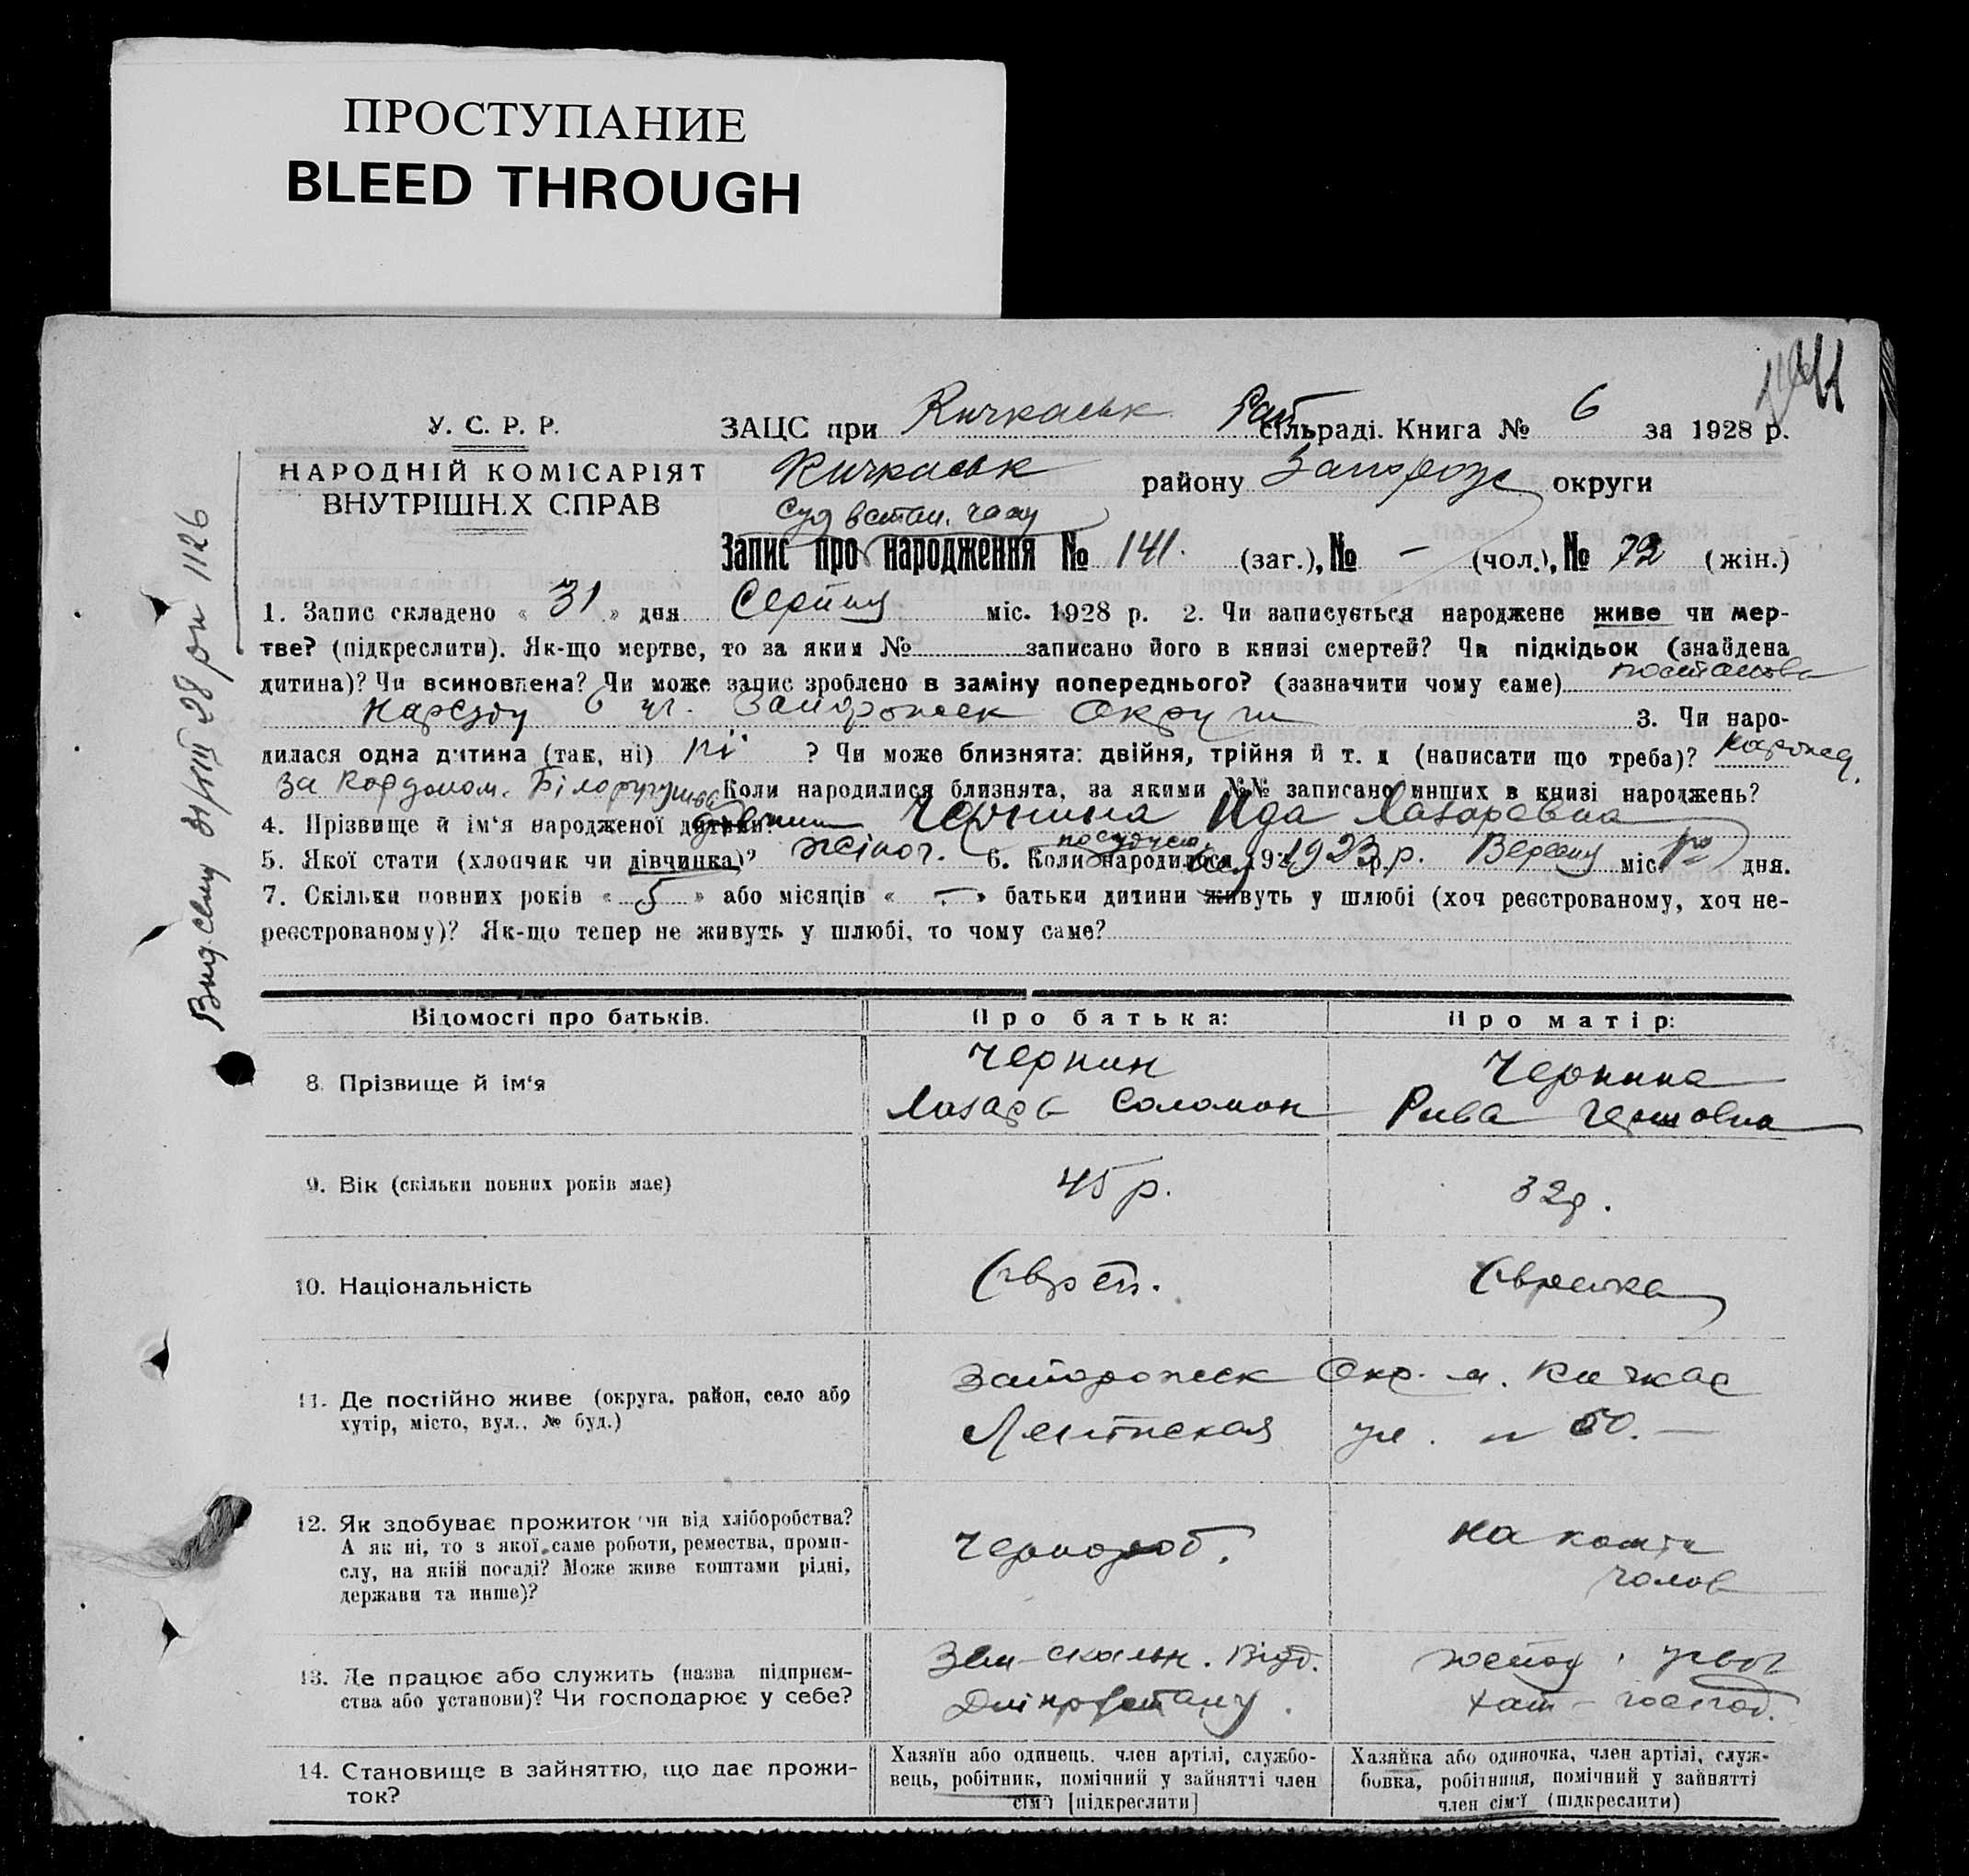 ПРОСТУПАНИЕ
BLEED THROUGH
У. С. Р. Р.
НАРОДНІЙ КОМІСАРІЯТ
ВНУТРІШН.Х СПРАВ
ЗАЦС при Кичкаськ Рай сільраді. Книга № 6 за 1928 р.
Кичкаськ району Запорож округи
Суд встан. часу
Запис про народження № 141. (заг.), № – (чол.), № 72 (жін.)
1. Запис складено « 31 » дня Серпня міс. 1928 р. 2. Чи записується народжене живе чи мер-
тве? (підкреслити). Як-що мертве, то за яким № записано його в книзі смертей? Чи підкідьок (знайдена
дитина)? Чи всиновлена? Чи може запис зроблено в заміну попереднього? (зазначити чому саме) постанова
Нарсуду 6 уч. Запорожск Округи 3. Чи наро-
дилася одна дитина (так, ні) ? Чи може близнята: двійня, трійня й т. д (написати що треба)?
за кордоном. Коли народилися близнята, за якими №№ записано инших в книзі народжень?
4. Прізвище й ім'я народженої дитини? Чернина Ида Лазаревна
5. Якої стати (хлопчик чи дівчинка)? жіноч. 6. Коли народилася 192 1923 р. Вересня міс. дня.
7. Скільки повних років « 5 » або місяців « – » батьки дитини живуть у шлюбі (хоч реєстрованому, хоч не-
реєстрованому)? Як-що тепер не живуть у шлюбі, то чому саме?
31/VIII 28 рок 1126
Відомості про батьків. Про батька: Про матір:
8. Прізвище й ім'я Чернин Чернина
Лазарь Соломон Рива Гершовна
9. Вік (скільки повних років має) 45 р. 32 р.
10. Національність Єврей. Єврейка
11. Де постійно живе (округа, район, село або Запорожск Окр. м. Кичкас
хутір, місто, вул., № буд.) ул. № 60.
12. Як здобуває прожиток чи від хліборобства? Чернороб. на кошти
А як ні, то з якої саме роботи, ремества, проми- чолов
слу, на якій посаді? Може живе коштами рідні,
держави та инше)?
13. Де працює або служить (назва підприєм- Зем-скальн. Відд.
ства або установи)? Чи господарює у себе? Дніпробстану хат-господ.
14. Становище в зайняттю, що дає прожи-
ток?
Хазяїн або одинець. член артілі, службо-
вець, робітник, помічний у зайнятті член
сім'ї [підкреслити]
Хазяйка або одиночка, член артілі, служ-
бовка, робітниця, помічний у зайнятті
член сім'ї (підкреслити)